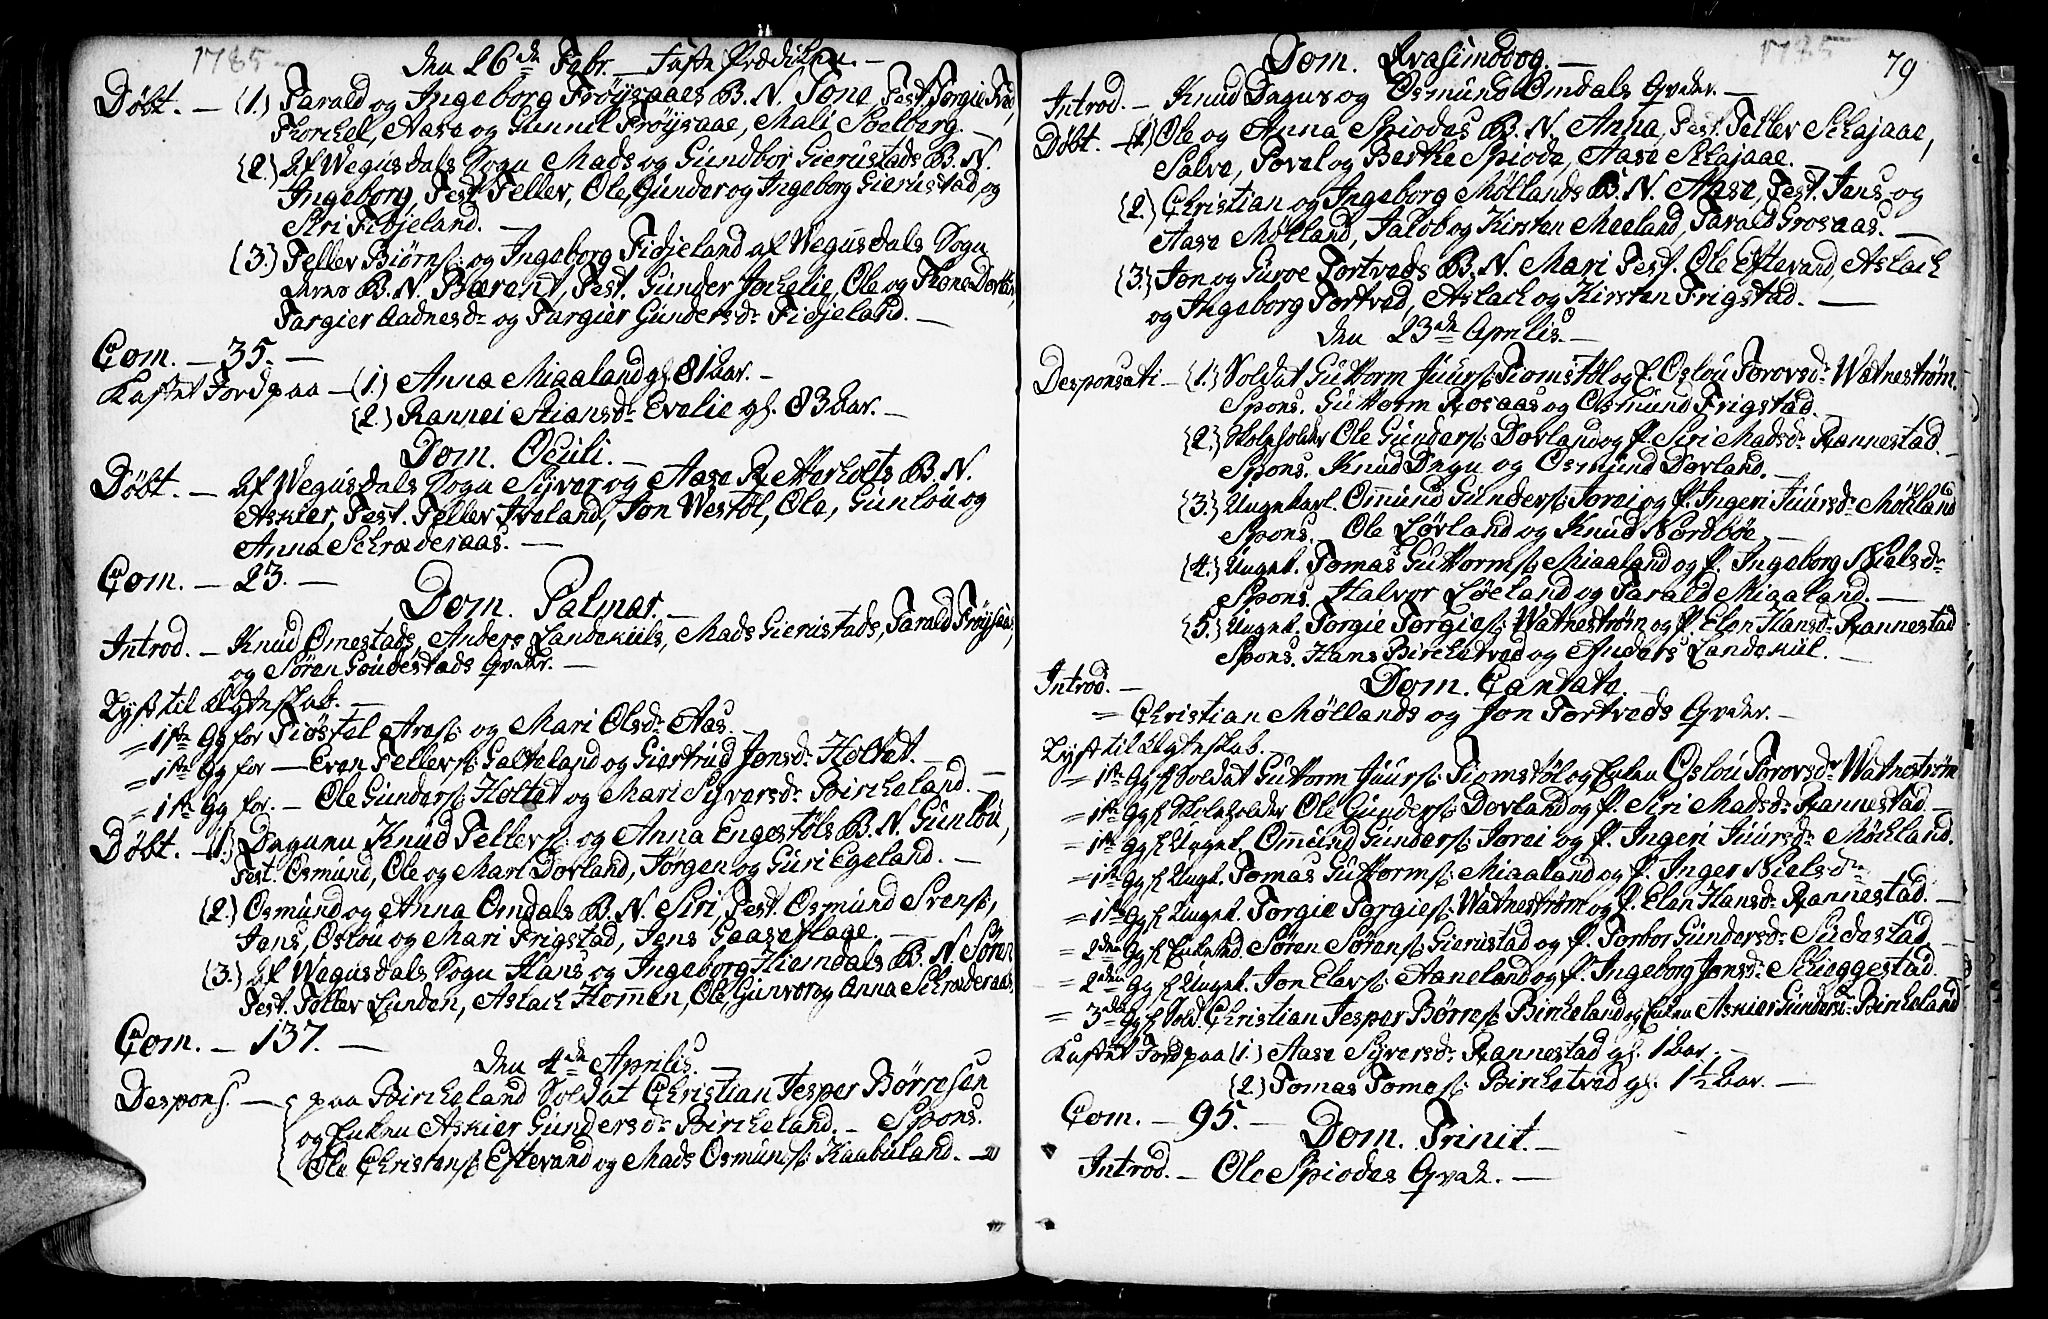 1785
den 26de Febr. — Faste Prædiken. —
Døbt. — (1.) Tarald og Ingeborg Frøysaaes B. N. Tone Test. Torgie
Thorchel, Aase og Gunnil Frøysaae, Mali Soelberg. —
(2.) Af Wegusdals Sogn Mads og Gundbor Gierustads B. N.
Ingeborg, Test. Tellev, Ole, Gunder og Ingeborg Gierustad, og
Siri Fidjeland. —
(3.) Tellev Biørns: og Ingeborg Fidjeland af Wegusdals Sogn
deres B. N. Bærent, Test. Gunder Jochelie, Ole og Thone
Targier Aadnesdr og Targier Gundersdr Fidjeland. —
Com. — 35. —
Kastet Jord paa — (1.) Anna Miaaland gl. 81 Aar. —
(2.) Rannei Stiansdr Evelie gl. 83 Aar. —
Dom. Oculi. —
Døbt. — Af Wegusdals Sogn Syver og Aase Retterholts B. N.
Askier, Test. Tellev Iveland, Jon Westøl, Ole, Gunlou og
Anna Schræderaas. —
Com. — 23. —
Dom. Palmar. —
Introd. — Knud Omestads, Anders Landekiils, Mads Gierustads, Tarald Frøysaaes,
og Søren Soudestads Qvder. —
Lyst til Ægteskab.
= 1ste Gg for Tiøstel Ares: og Mari Olsdr Aas. —
= 1ste Gg for — Even Tellevs: Galteland og Giertrud Jonsdr Holtet. —
= 1ste Gg for. — Ole Gunders: Holtet og Mari Syversdr Bircheland. —
Døbt. — (1.) Dagunu Knud Tellevs: og Anna Engestøls B. N. Gunlou,
Test. Osmund, Ole og Mari Dovland, Jørgen og Guri Egeland. —
(2.) Osmund og Anna Omdals B. N. Siri, Test. Osmund Svens:,
Jens, Oslou og Mari Frigstad, Jens Gaaseflage. —
(3.) Af Wegusdals Sogn Hans og Ingeborg Hiemdals B. N. Søren
Test. Tellev Lunden, Aslach Hommen, Ole, Gunvor og Anna Schræderaas.
Com. — 137. —
den 4de Aprilis. —
Despons. — paa Bircheland Soldat Christian Jesper Børresen
og Enken Askier Gundersdr Bircheland. — Spons.
Ole Christens: Eftevand og Mads Osmunds: Kaabuland. —
1785
79
Dom. Qvasimodog. —
Introd. — Knud Dagus og Osmund Omdals Qvder. —
Døbt. — (1.) Ole og Anna Spiodes B. N. Anna, Test. Tellev Schajaae,
Salve, Povel og Berthe Spiode, Aase Schajaae.
(2.) Christian og Ingeborg Møllands B. N. Aase, Test. Jens og
Aase Mølland, Jakob og Kirsten Meeland, Tarald Grosaas. —
(3.) Jon og Guroe Tortveds B. N. Mari Test. Ole Eftevand, Aslach
og Ingeborg Tortved, Aslach og Kirsten Frigstad. —
den 23de Aprilis. —
Desponsati — (1.) Soldat Guttorm Juurs: Tiomstøl og P. Oslou Torovsdr Watnestrøm.
Spons. Guttorm Rosaas og Osmund Frigstad. —
(2.) Skoleholder Ole Gunders: Dovland og P. Siri Madsdr Rannestad.
Spons. Knud Dagu og Osmund Dovland. —
(3.) Ungekarl. Ommund Gunders: Jorei og P. Ingeri Juursdr Møhland
Spons. Ole Løvland og Knud Nordbøe —
(4.) Unget. Tomas Guttorms: Miaaland og P. Ingeborg Nielsdr
Spons. Halvor Løeland og Tarald Miaaland. —
(5.) Unget. Torgie Torgies: Watnestrøm og P. Elen Hansdr Rannestad
Spons. Hans Birchetved og Anders Landekiil. —
Introd. — Dom. Cantate.
= Christian Møllands og Jon Tortveds Qvder. —
Lyst til Ægteskab.
= 1ste Gg f Soldat Guttorm Juurs: Tiomstøl og Enken Oslou Torovsdr Watnestrøm
= 1ste Gg f Skoleholder Ole Gunders: Dovland og P. Siri Madsdr Rannestad. —
= 1ste Gg f Unget. Ommund Gunders: Jorei og P. Ingeri Juursdr Møhland.
= 1ste Gg f Unget. Tomas Guttorms: Miaaland og P. Inger Nielsdr —
= 1ste Gg f Unget. Torgie Torgies: Watnestrøm og P. Elen Hansdr Rannestad. —
= 2den Gg f Enkemd. Søren Sørens: Gierustad og P. Torbor Gundersdr Sudestad —
= 2den Gg f Unget. Jon Elevs: Aaneland og P. Ingeborg Jonsdr Skieggestad.
= 3die Gg f Sold. Christian Jesper Børns: Bircheland og Enken Askier Gundersdr Bircheland
Kastet Jord paa (1.) Aase Syversdr Rannestad gl. 1 Aar. —
(2.) Tomas Tomes: Birchetved gl. 1½ Aar. —
Com. — 95. —
Dom. Trinit. —
Introd. — Ole Spiodes Qvde. —